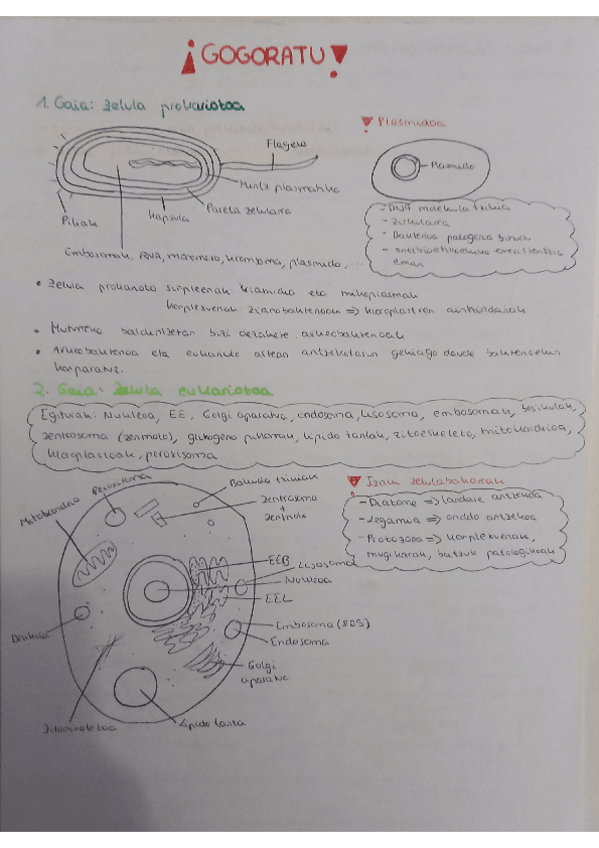 ¡GOGORATU!
1. Gaia: Zelula prokariotoa
Flagelo
Mintz plasmatiko
Pareta zelularra
Kapsula
Piliak
Erribosomak, RNA, kromosoma, plasmido, ...
! Plasmidoa
Plasmido
- DNA molekula txikia
- Zirkularra
- Bakterioa patogeno bihurtu
- Antibiotikoekiko erresistentzia
eman
• Zelula prokarioto sinpleenak klamidia eta mikoplasmak
konplexuenak zianobakterioak => kloroplastoen aintzindariak
• Muturreko baldintzetan bizi dezakete, arkeobakterioak
• Arkeobakterioa eta eukarioto artean antzekotasun gehiago daude bakterioekin
konparatuz.
2. Gaia: Zelula eukariotoa
Egiturak: Nukleoa, EE, Golgi aparatua, endosoma, lisosoma, erribosomak, besikulak,
zentrosoma (zentriolo), glukogeno pikorrak, lipido tantak, zitoeskeleto, mitokondrioa,
kloroplastoak, peroxisoma
Mitokondrio
Peroxisoma
Bakuolo txikiak
Zentrosoma
Zentriolo
EEB
Lisosoma
Nukleoa
EEL
Erribosoma (80S)
Endosoma
Golgi
aparatua
Lipido tanta
Zitoeskeletoa
Besikula
! Izaki zelulabakarrak
- Diatomo => landare antzekoa
- Legamia => onddo antzekoa
- Protozoo => konplexuenak,
mugikorrak, batzuk patologikoak